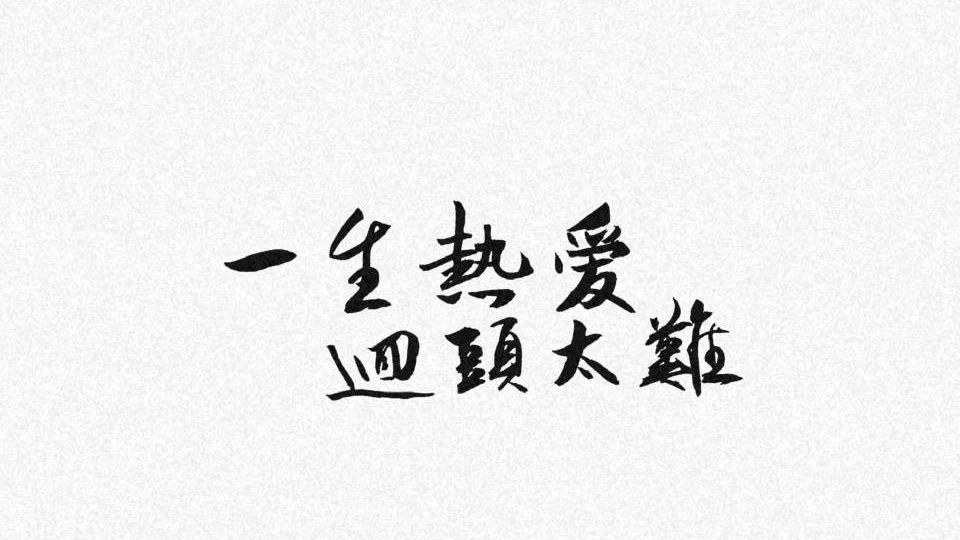 一生熱爱
迴頭太難